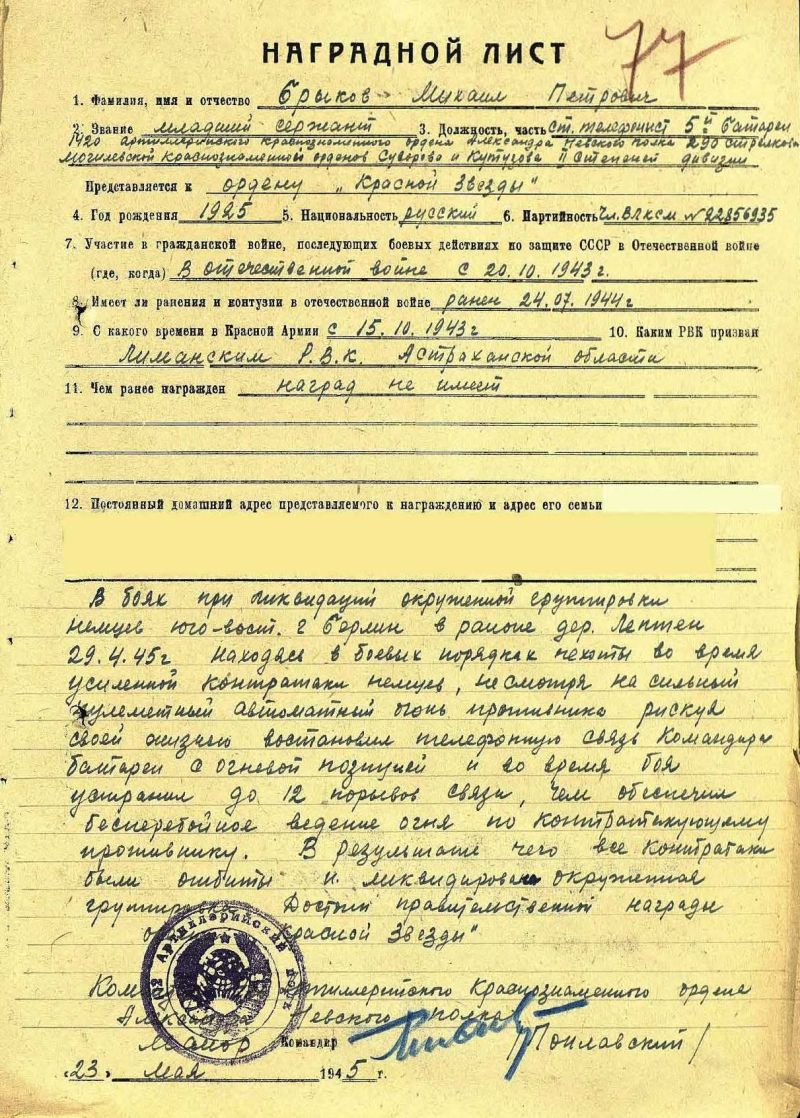 НАГРАДНОЙ ЛИСТ
77
1. Фамилия, имя и отчество Брыков Михаил Петрович
2. Звание младший сержант 3. Должность, часть ст. телефонист 5й батареи
1420 артиллерийского краснознаменного ордена Александра Невского полка 290 стрелковой
Могилевской Краснознаменной орденов Суворова и Кутузова II степеней дивизии
Представляется к ордену „Красной Звезды"
4. Год рождения 1925 5. Национальность русский 6. Партийность Чл. ВЛКСМ № 22856935
7. Участие в гражданской войне, последующих боевых действиях по защите СССР в Отечественной войне
(где, когда) В отечественной войне с 20.10.1943г.
8. Имеет ли ранения и контузии в отечественной войне ранен 24.07.1944г
9. С какого времени в Красной Армии с 15.10.1943г 10. Каким РВК призван
Лиманским Р.В.К. Астраханской области
11. Чем ранее награжден наград не имеет
12. Постоянный домашний адрес представляемого к награждению и адрес его семьи
В боях при ликвидаций окруженной группировки
немцев юго-вост. г Берлин в районе дер. Лептен
29.4.45г находясь в боевых порядках пехоты во время
усиленной контратаки немцев, не смотря на сильный
пулеметный автоматный огонь противника рискуя
своей жизнью востановил телефонную связь командира
батареи с огневой позицией и во время боя
устранил до 12 порывов связи, чем обеспечил
бесперебойное ведение огня по контратакующему
противнику. В результате чего все контратаки
были отбиты и ликвидирована окруженная
группировка. Достоин правительственной награды
Красной Звезды"
Артиллерийский полк
Артиллерийского Краснознаменного ордена
Александра Невского полка
Майор Командир /Поплавский/
„23" мая 1945 г.